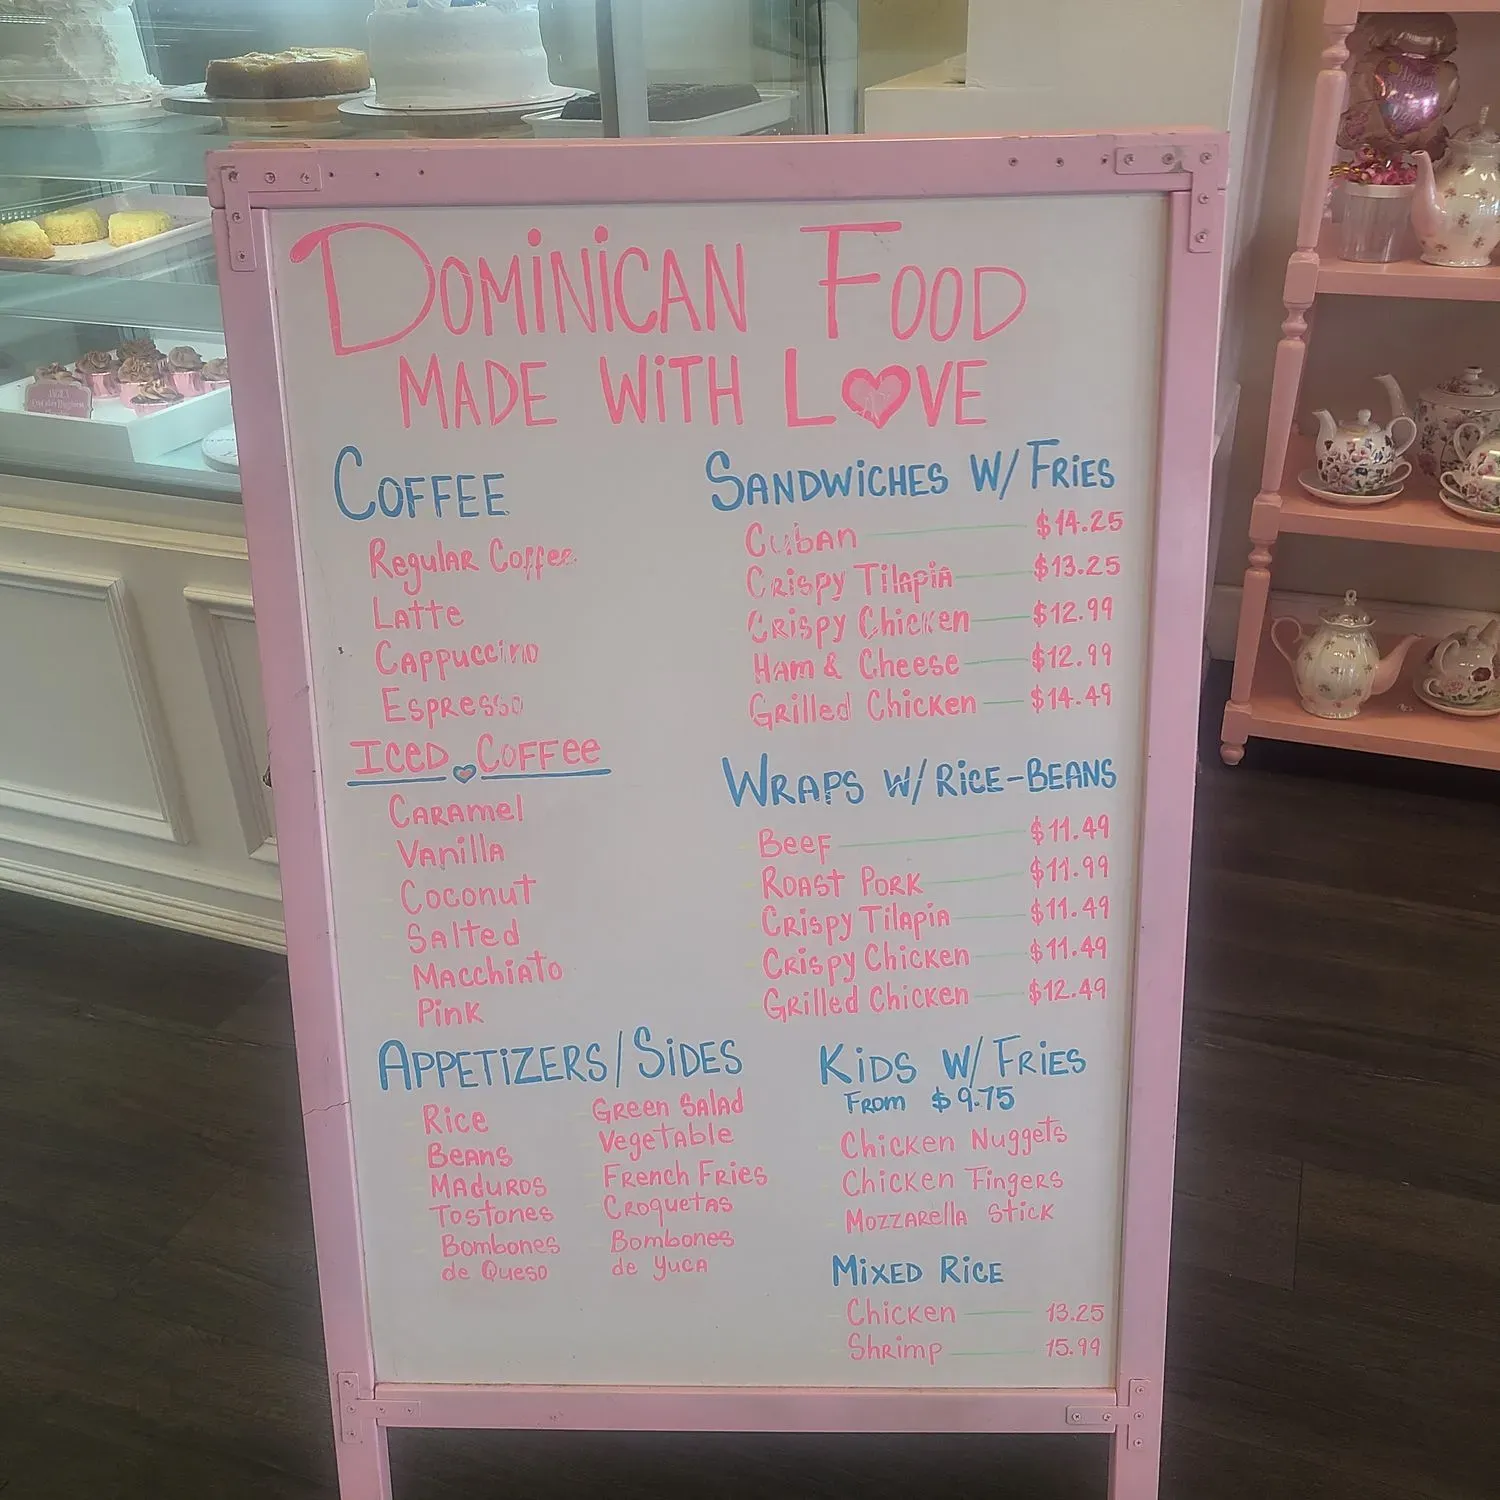 Dominican Food
Made with Love
Coffee
Regular Coffee
Latte
Cappuccino
Espresso
Iced Coffee
Caramel
Vanilla
Coconut
Salted
Macchiato
Pink
Sandwiches w/ Fries
Cuban $14.25
Crispy Tilapia $13.25
Crispy Chicken $12.99
Ham & Cheese $12.99
Grilled Chicken $14.49
Wraps w/ Rice-Beans
Beef $11.49
Roast Pork $11.99
Crispy Tilapia $11.49
Crispy Chicken $11.49
Grilled Chicken $12.49
Appetizers/Sides
Rice
Beans
Maduros
Tostones
Bombones
de Queso
Green Salad
Vegetable
French Fries
Croquetas
Bombones
de Yuca
Kids w/ Fries
From $9.75
Chicken Nuggets
Chicken Fingers
Mozzarella Stick
Mixed Rice
Chicken 13.25
Shrimp 15.99